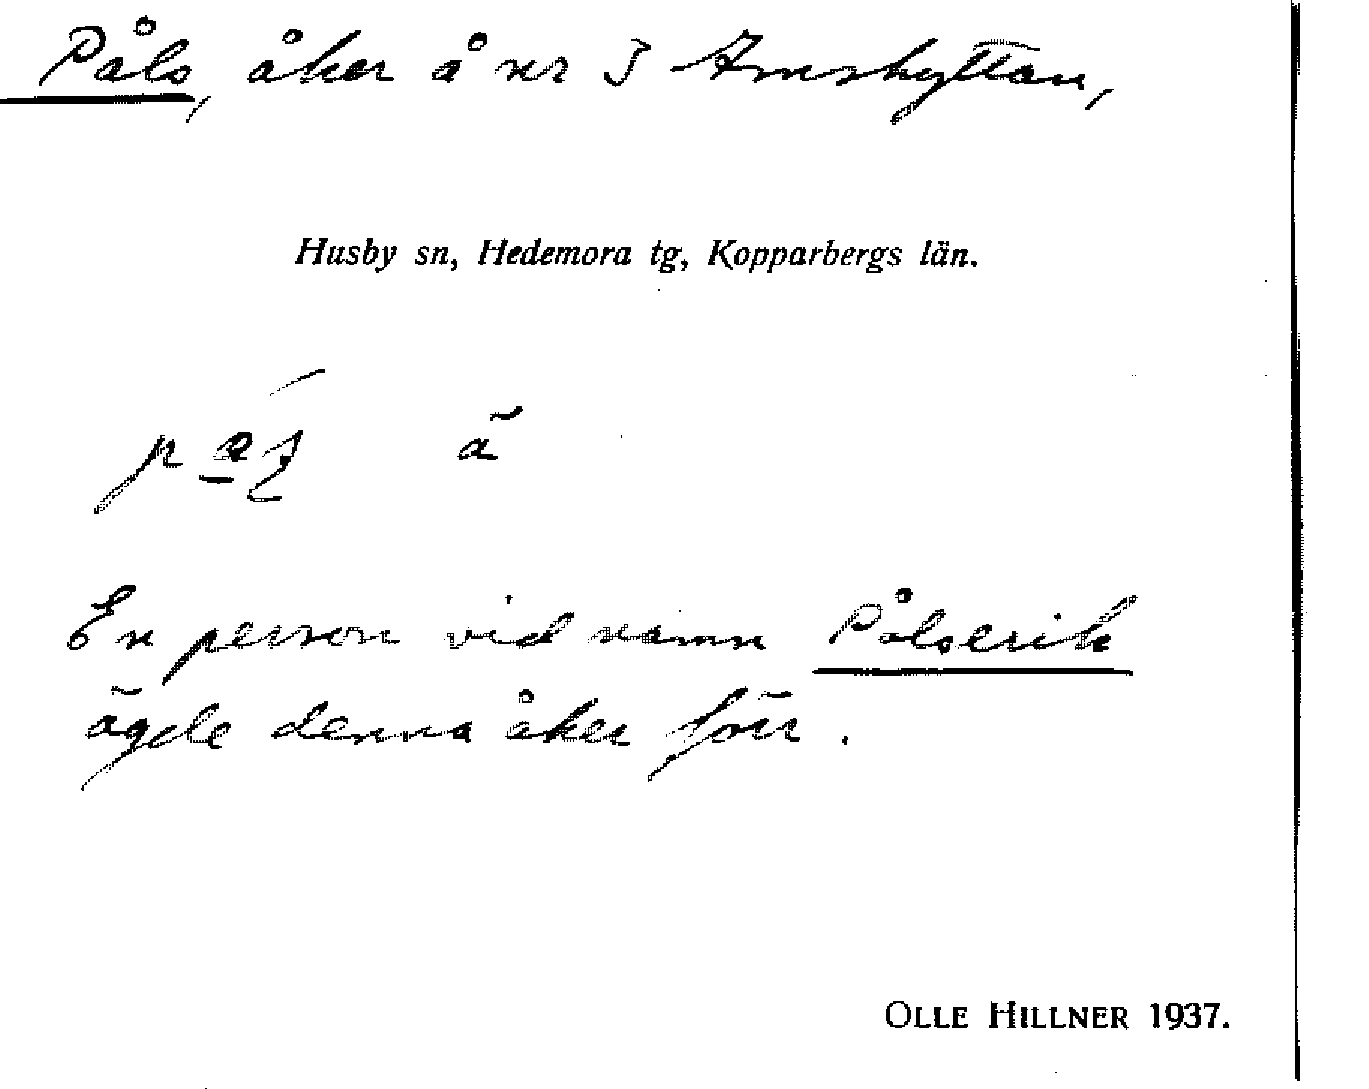 Påls, åker å nr 3 Amshyttan,
Husby sn, Hedemora tg, Kopparbergs län.
En person vid namn Pålserik
ägde denna åker förr.
OLLE HILLNER 1937.